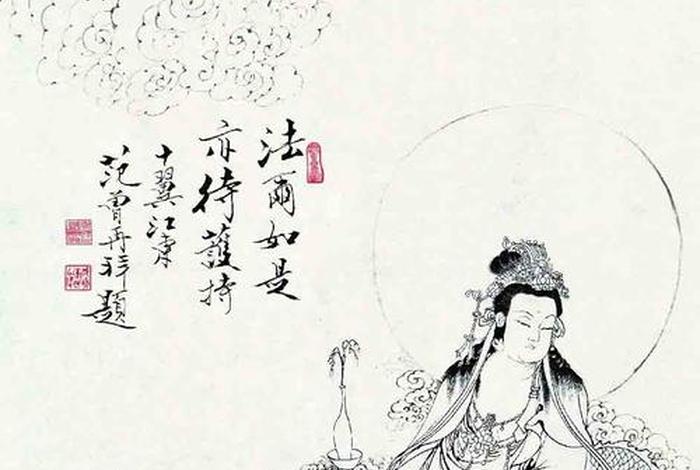 法爾如是
亦待護持
十翼江東
范曾再拜題